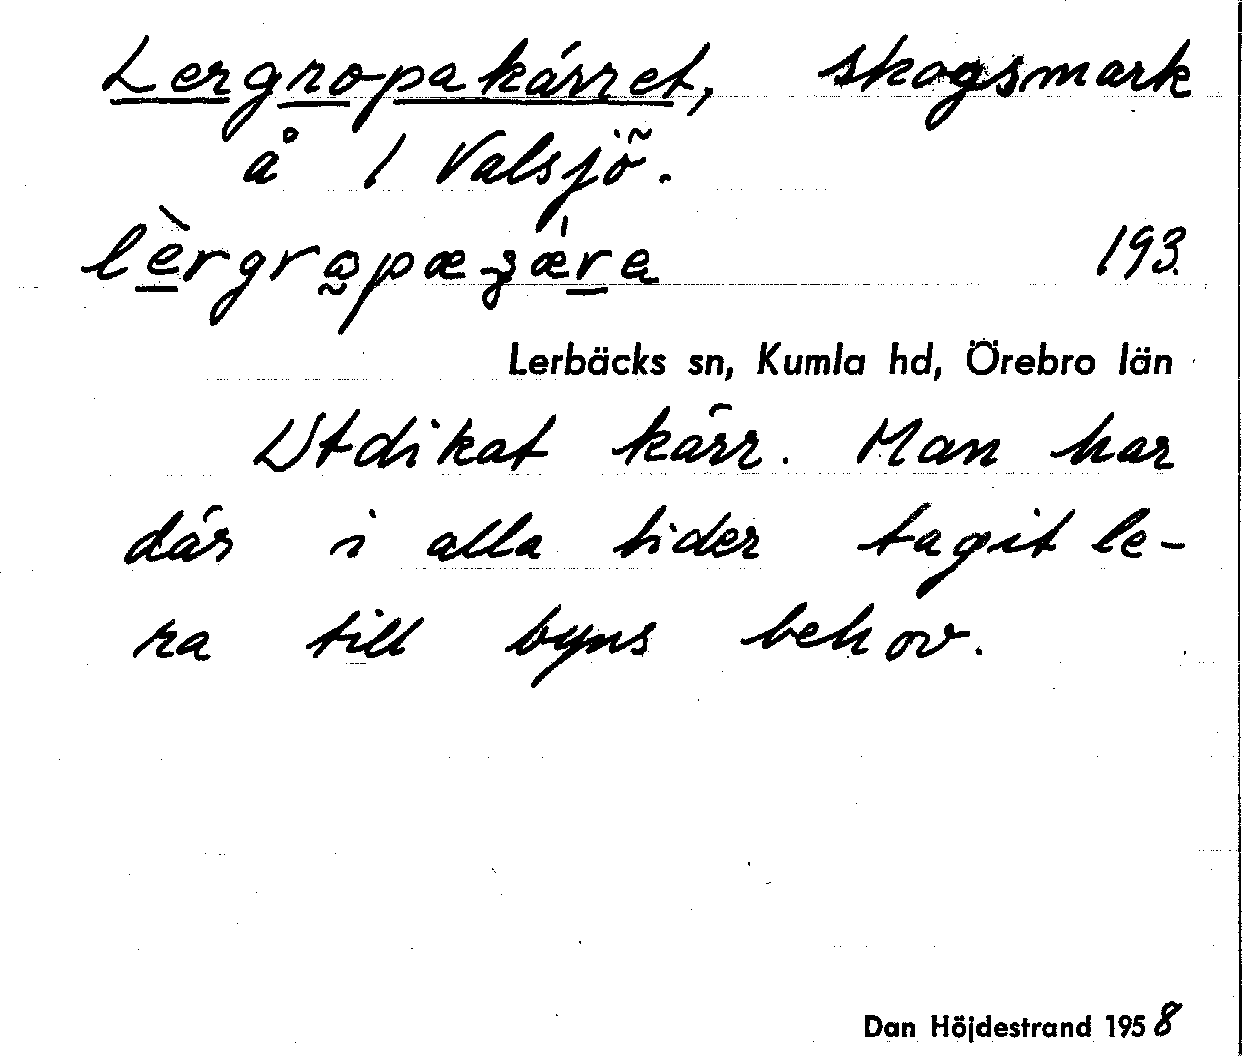 Lergropakärret, skogsmark
å 1 Valsjö.
193.
Lerbäcks sn, Kumla hd, Örebro län
Utdikat kärr. Man har
där i alla tider tagit le-
ra till byns behov.
Dan Höjdestrand 1958